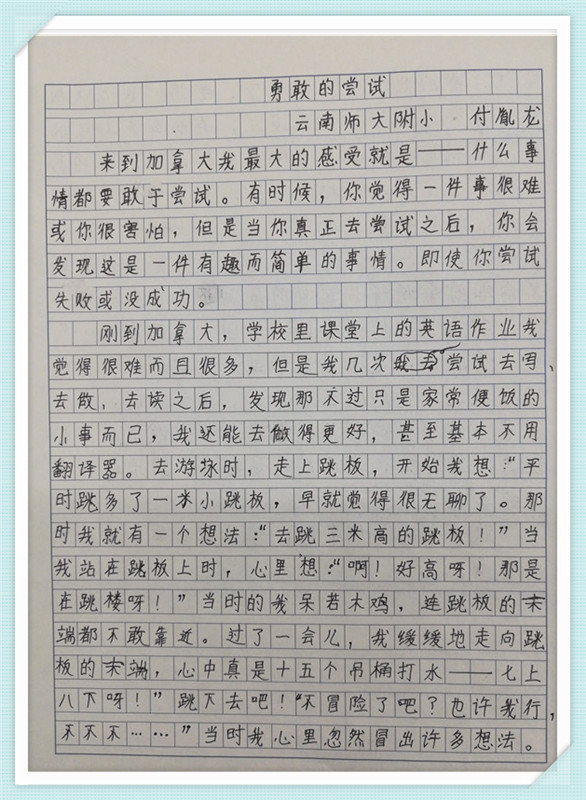 勇敢的尝试
云南师大附小 付胤龙
来到加拿大我最大的感受就是——什么事
情都要敢于尝试。有时候，你觉得一件事很难
或你很害怕，但是当你真正去尝试之后，你会
发现这是一件有趣而简单的事情。即使你尝试
失败或没成功。
刚到加拿大，学校里课堂上的英语作业我
觉得很难而且很多，但是我几次尝试去写、
去做、去读之后，发现那不过只是家常便饭的
小事而已，我还能去做得更好，甚至基本不用
翻译器。去游泳时，走上跳板，开始我想：“平
时跳多了一米小跳板，早就觉得很无聊了。那
时我就有一个想法：“去跳三米高的跳板！”当
我站在跳板上时，心里想：“啊！好高呀！那是
在跳楼呀！”当时的我呆若木鸡，连跳板的末
端都不敢靠近。过了一会儿，我缓缓地走向跳
板的末端，心中真是十五个吊桶打水——七上
八下呀！”跳下去吧！“不冒险了吧？也许我行，
不不不……”当时我心里忽然冒出许多想法。